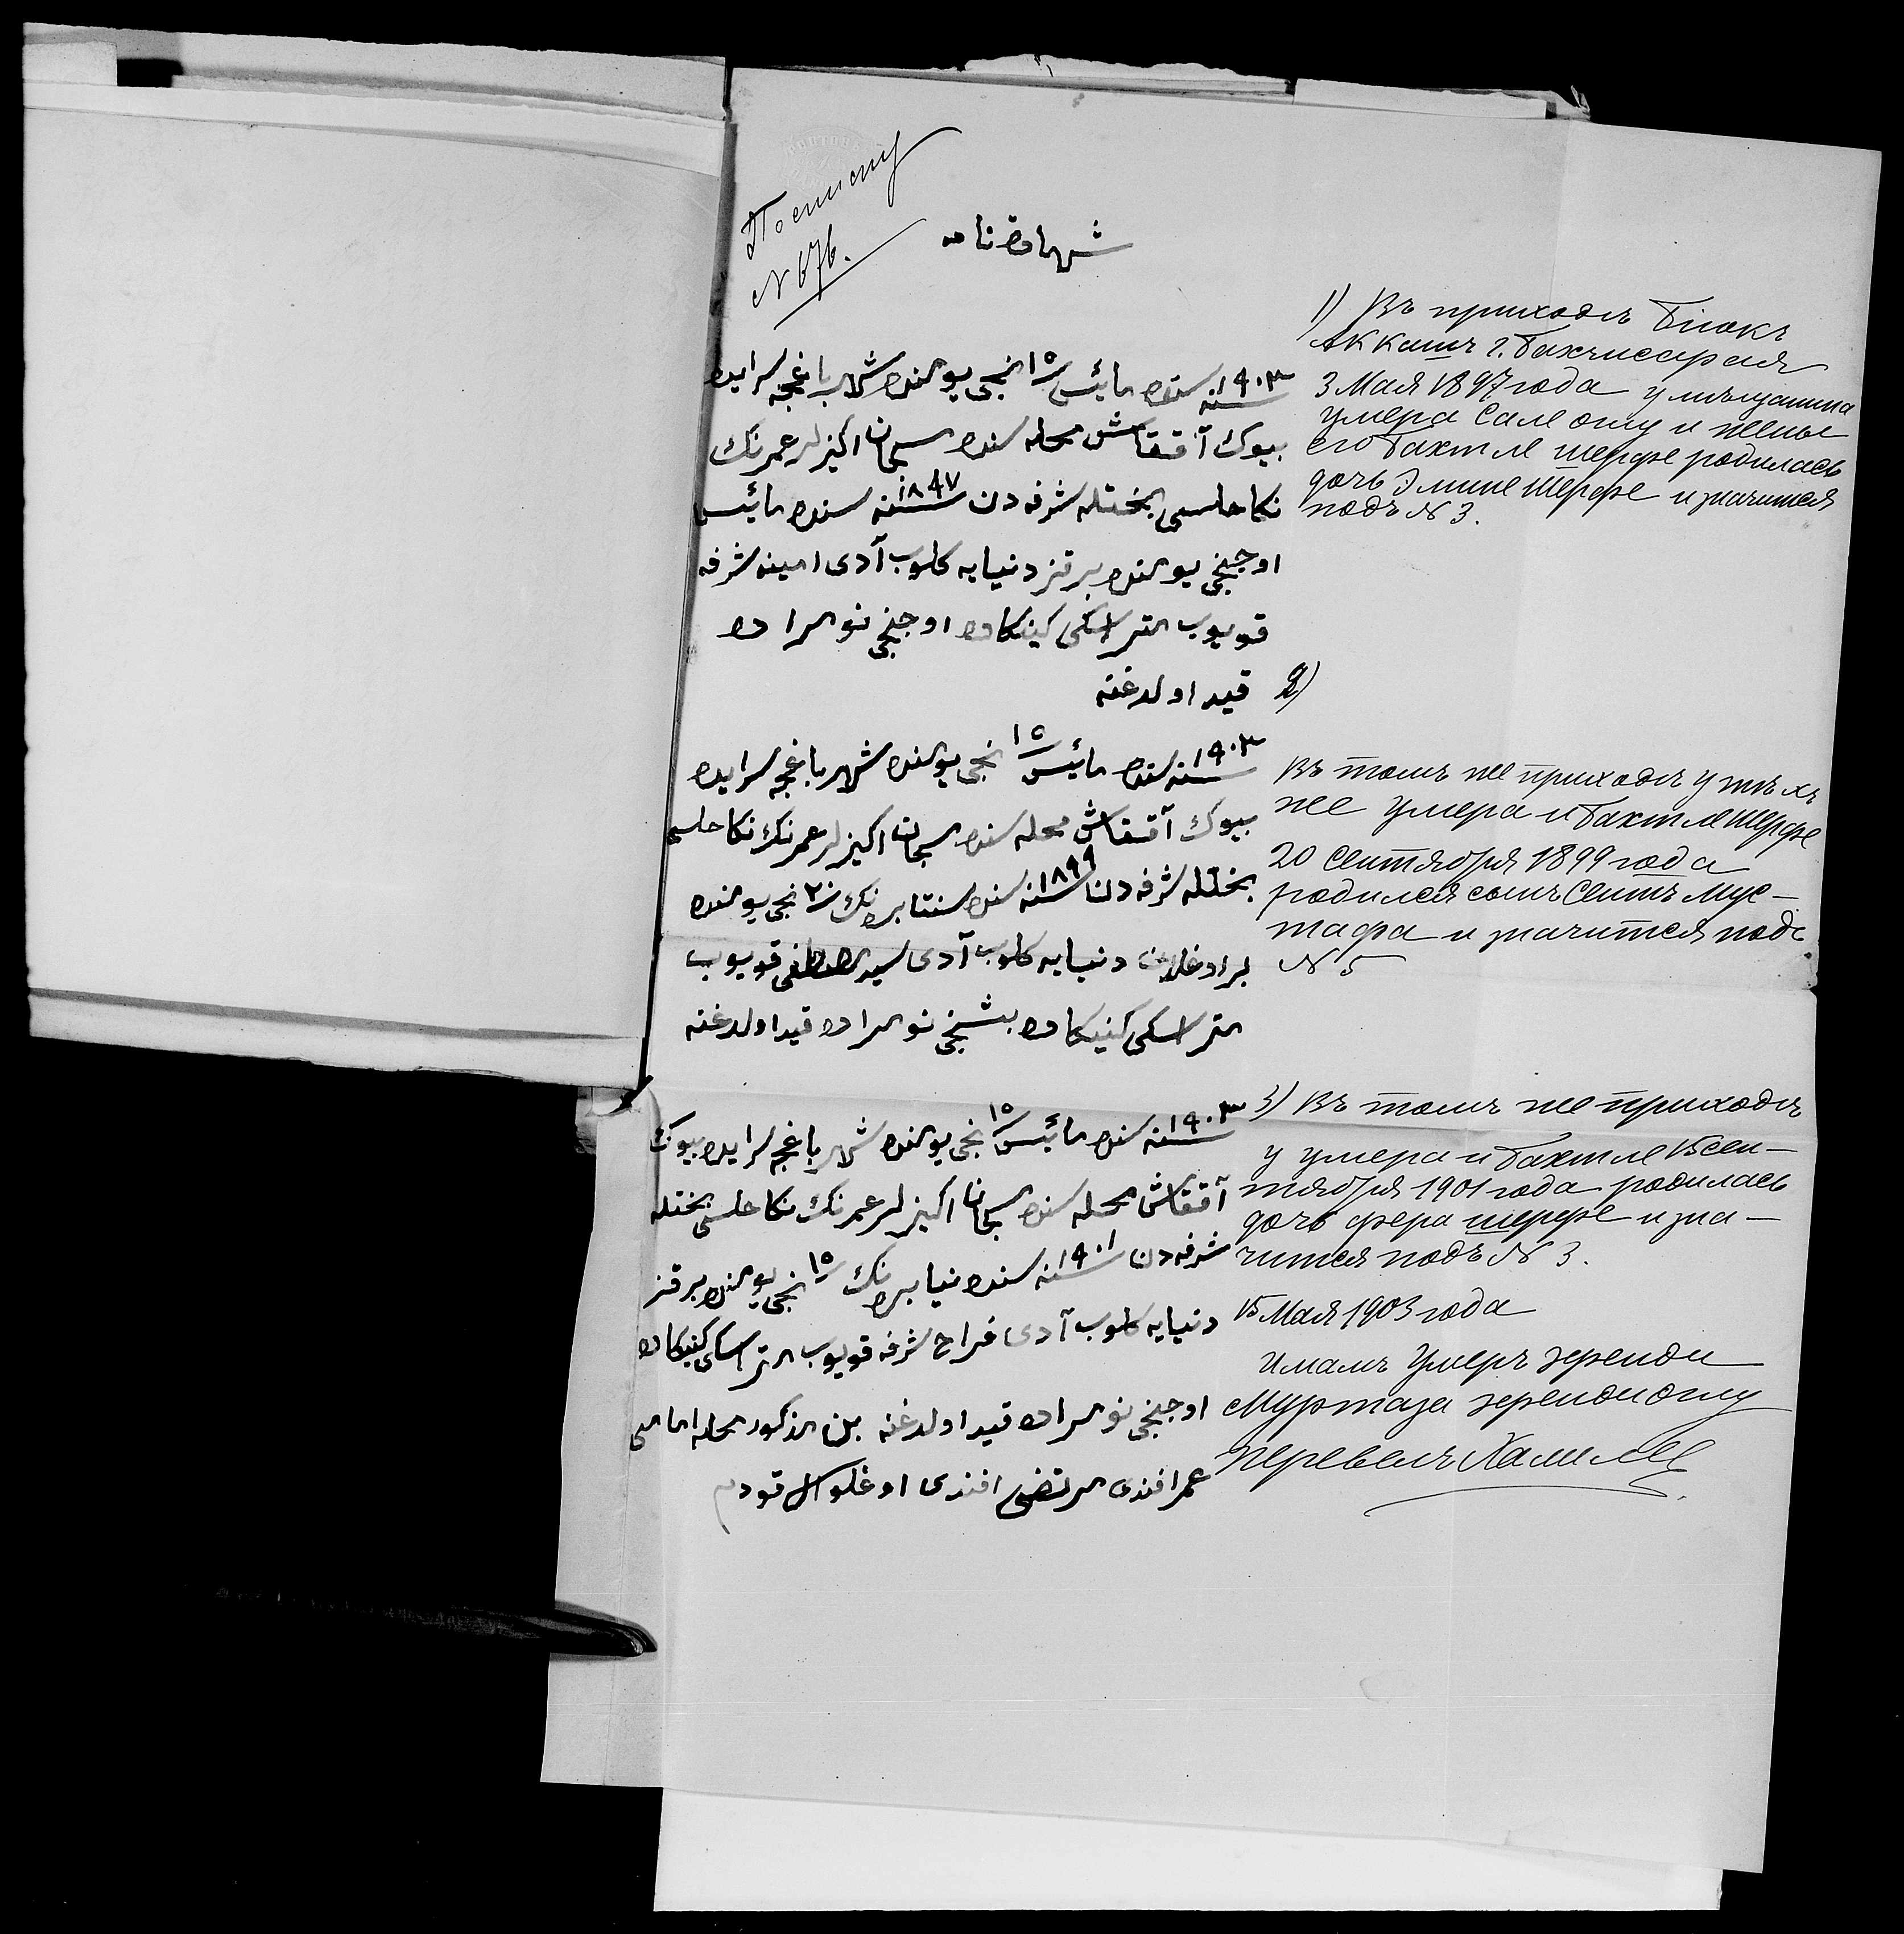 По списку
№ 676.
شهادتنامه
١٩٠٣ سنه سنده مائیس ١٥ نجی یومنده شهر باغچه سرایده
بیوك آققاش محله سنده سبحان اکیزلر عمرنك
نکاحلسی بختله شرفه دن ١٨٩٧ سنه سنده مائیس
اوچنجی یومنده بر قز دنیایه کلوب آدی امینه شرفه
قویوب متر اسکی کینکاده اوچنجی نومراده
قید اولدغنه
١٩٠٣ سنه سنده مائیس ١٥ نجی یومنده شهر باغچه سرایده
بیوك آققاش محله سنده سبحان اکیزلر عمرنك نکاحلسی
بختله شرفه دن ١٨٩٩ سنه سنده سنتابرەنك ٢٠ نجی یومنده
بر اوغلان دنیایه کلوب آدی سید مصطفی قویوب
متر اسکی کنیکاده بشنجی نومراده قید اولدغنه
١٩٠٣ سنه سنده مائیس ١٥ نجی یومنده شهر باغچه سرایده بیوك
آققاش محله سنده سبحان اکیزلر عمرنك نکاحلسی بختله
شرفه دن ١٩٠١ سنه سنده ١٥ نجی یومنده بر قز
دنیایه کلوب آدی فراح شرفه قویوب متر اسکی کنیکاده
اوچنجی نومراده قید اولدغنه بن مذکور محله امامی
عمر افندی مرتضی افندی اوغلو قول قودم
1) Въ приходѣ Біюкъ
Аккашъ г. Бахчисарая
3 Мая 1897 года у мѣщанина
Умера Сале оглу и жены
его Бахтле Шерфе родилась
дочь Эмине Шерфе и значится
подъ № 3.
2)
Въ томъ же приходѣ у тѣхъ
же Умера и Бахтле Шерфе
20 Сентября 1899 года
родился сынъ Сеитъ Мус-
тафа и значится подъ
№ 5
3) Въ томъ же приходѣ
у Умера и Бахтле 15 Сен-
тября 1901 года родилась
дочь Фера Шерфе и зна-
чится подъ № 3.
15 Мая 1903 года
Имамъ Умеръ Эфенди
Муртаза Эфенди оглу
Перевелъ